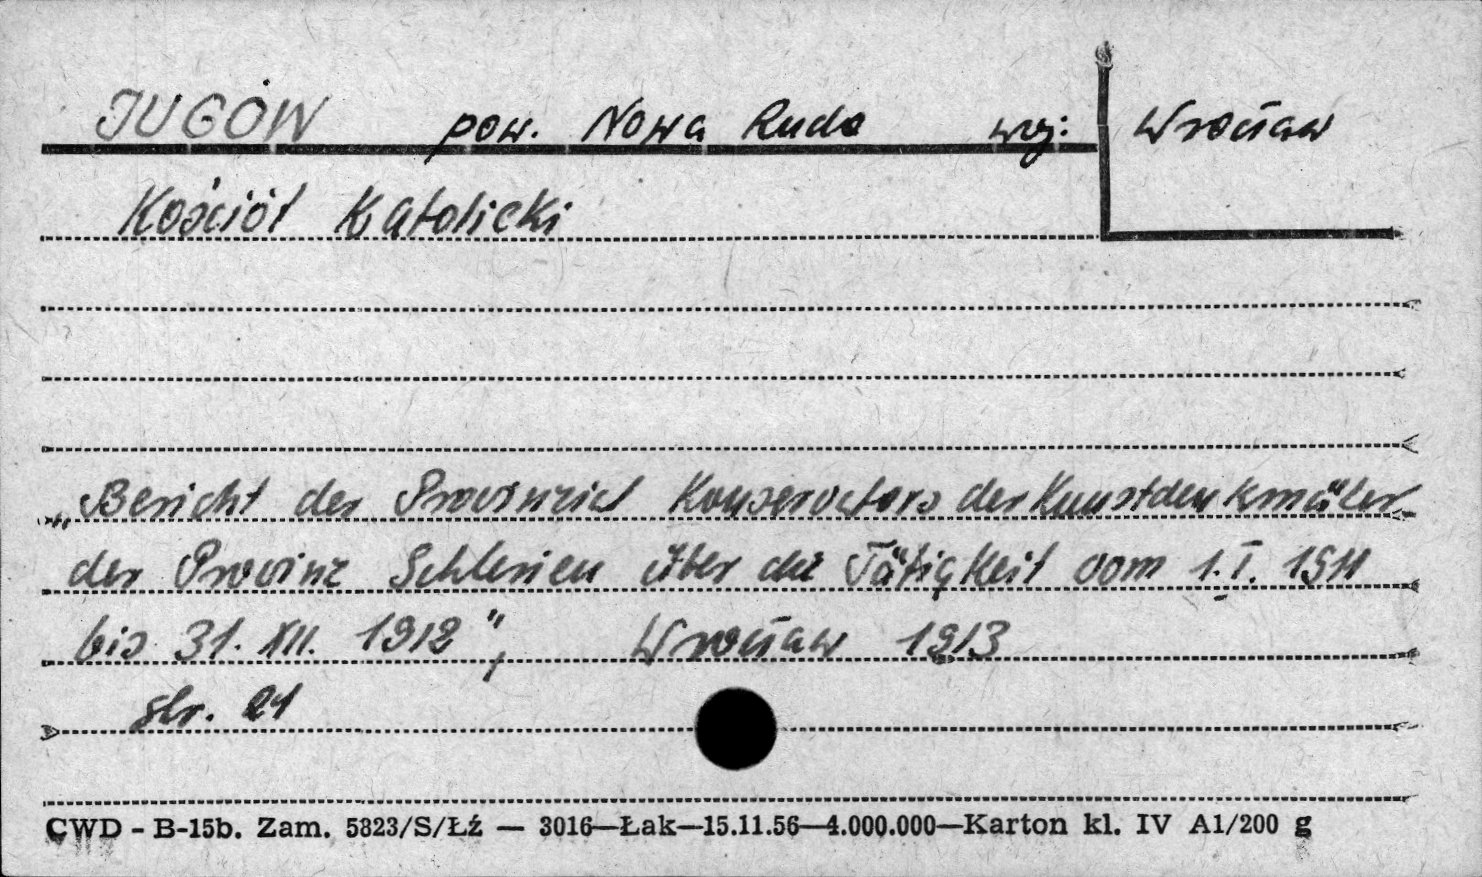 JUGÓW pow. Nowa Ruda woj: Wrocław
Kościół Katolicki
„Bericht des Provinzial Konservators der Kunstdenkmäler
der Provinz Schlesien über die Tätigkeit vom 1.I. 1911
bis 31. XII. 1912", Wrocław 1913
str. 21
CWD - B-15b. Zam. 5823/S/Łź — 3016—Łak—15.11.56—4.000.000—Karton kl. IV A1/200 g